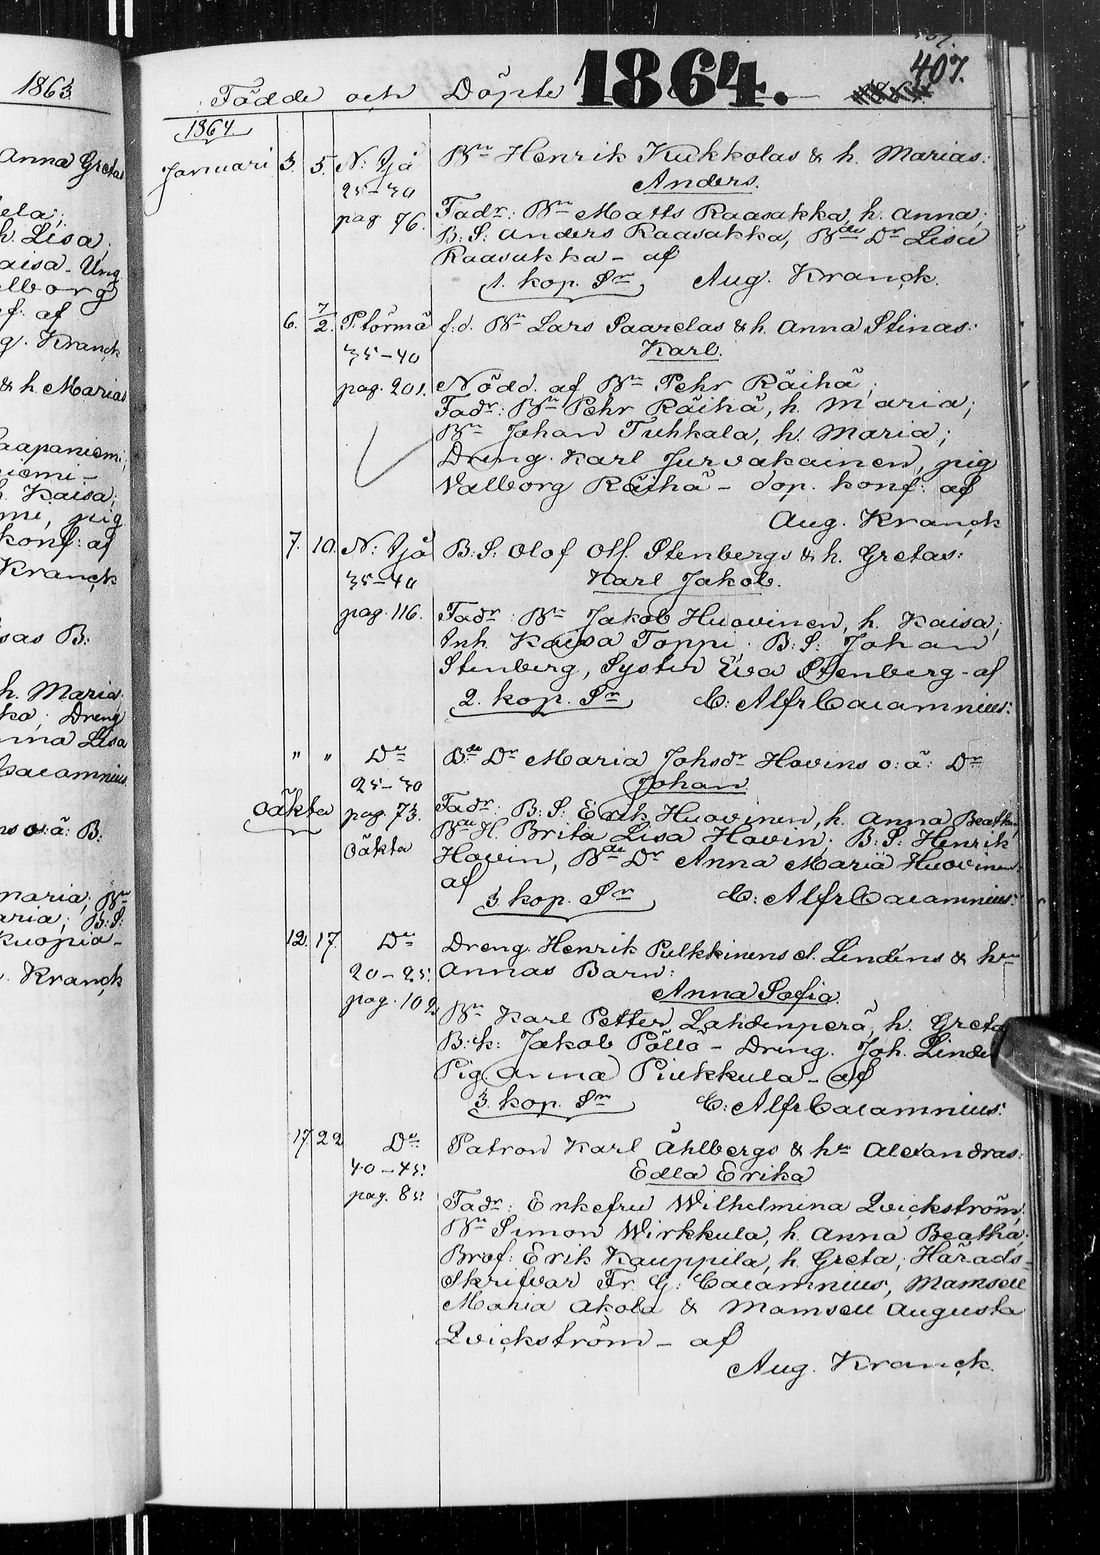 1863
Anna Greta
ela;
h. Lisa
aisa - Ung
alborg
f: af
g. Kranck
& h. Marias
aapaniemi;
iemi -
h. Kaisa;
mi, pig
konf: af
Kranck
sas B:
h. Maria
ka; Dreng
nna Lisa
Cacamnius
ns o: ä: B.
maria; Bn
aria; B: S:
Kuopia -
. Kranck
Födde och Döpte 1864. 407.
1864.
Januari 3. 5. N: Ijå Bn Henrik Kukkolas & h. Marias:
25-30 Anders.
pag 76. Fadr: Bn Matts Raasakka, h. Anna;
B. S: Anders Raasakka, Bde Dr Lisa
Raasakka - af
1. kop. Sr Aug. Kranck.
6. 7/2. P. törmä f. d. Bn Lars Paarelas & h. Anna Stinas:
35-40 Karl.
pag. 201. Nödd. af Bn Pehr Räihä;
Fadr: Bn Pehr Räihä, h. Maria;
Bn Johan Tuhkala, h. Maria;
Dreng. Karl Jurvakainen, pig
Valborg Räihä - dop. konf: af
Aug. Kranck
7. 10. N: Ijå B: S: Olof Olf. Stenbergs & h. Gretas:
35-40 Karl Jakob.
pag. 116. Fadr: Bn Jakob Huovinen, h. Kaisa;
Inh. Kaisa Toppi; B: S: Johan
Stenberg, Syster Eva Stenberg - af
2. kop. Sr C: Alfr Cacamnius:
" " Do Bde Dr Maria Johsdr Hovins o: ä: Dr
25-30 Johan
oäkta pag. 73. Fadr: B: S: Erik Huovinen, h. Anna Beatha,
oäkta Bde H. Brita Lisa Hovin; B: S: Henrik
Hovin, Bde Dr Anna Maria Huovinen:
af
3 kop. Sr C: Alfr Cacamnius:
12. 17. Do Dreng. Henrik Pulkkinens l. Lindens & hn
20-25: Annas Barn:
pag. 102. Anna Sofia.
Bn Karl Petter Lahdenperä, h. Greta
B: k: Jakob Pöllö - Dreng. Joh. Linden
Pig. Anna Piukkula - af
3. kop. Sr C: Alfr Cacamnius:
17 22 Do Patron Karl Åhlbergs & hn Alexandras:
40-45: Edla Erika
pag. 85: Fadr: Enkefru Wilhelmina Qvickström,
Bn Simon Wirkkula, h. Anna Beatha;
Brof: Erik Kauppila, h. Greta; Härads-
Skrifvar Fr. G: Cacamnius, Mamsell
Maria Akola & Mamsell Augusta
Qvickström - af
Aug. Kranck.